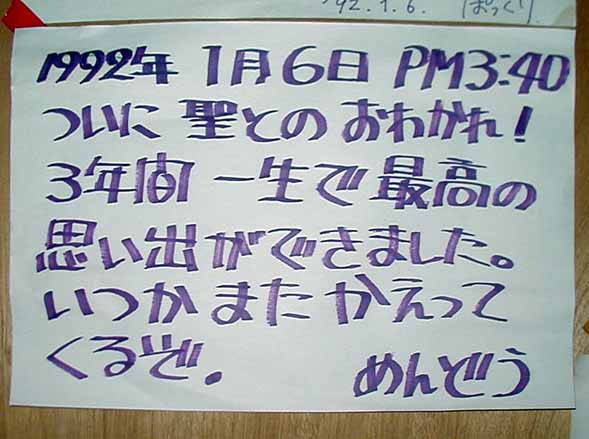 '92.1.6. ぱっくり
1992年 1月6日 PM3:40
ついに 聖との おわかれ!
3年間 一生で 最高の
思い出ができました。
いつか また かえって
くるぞ. めんどう